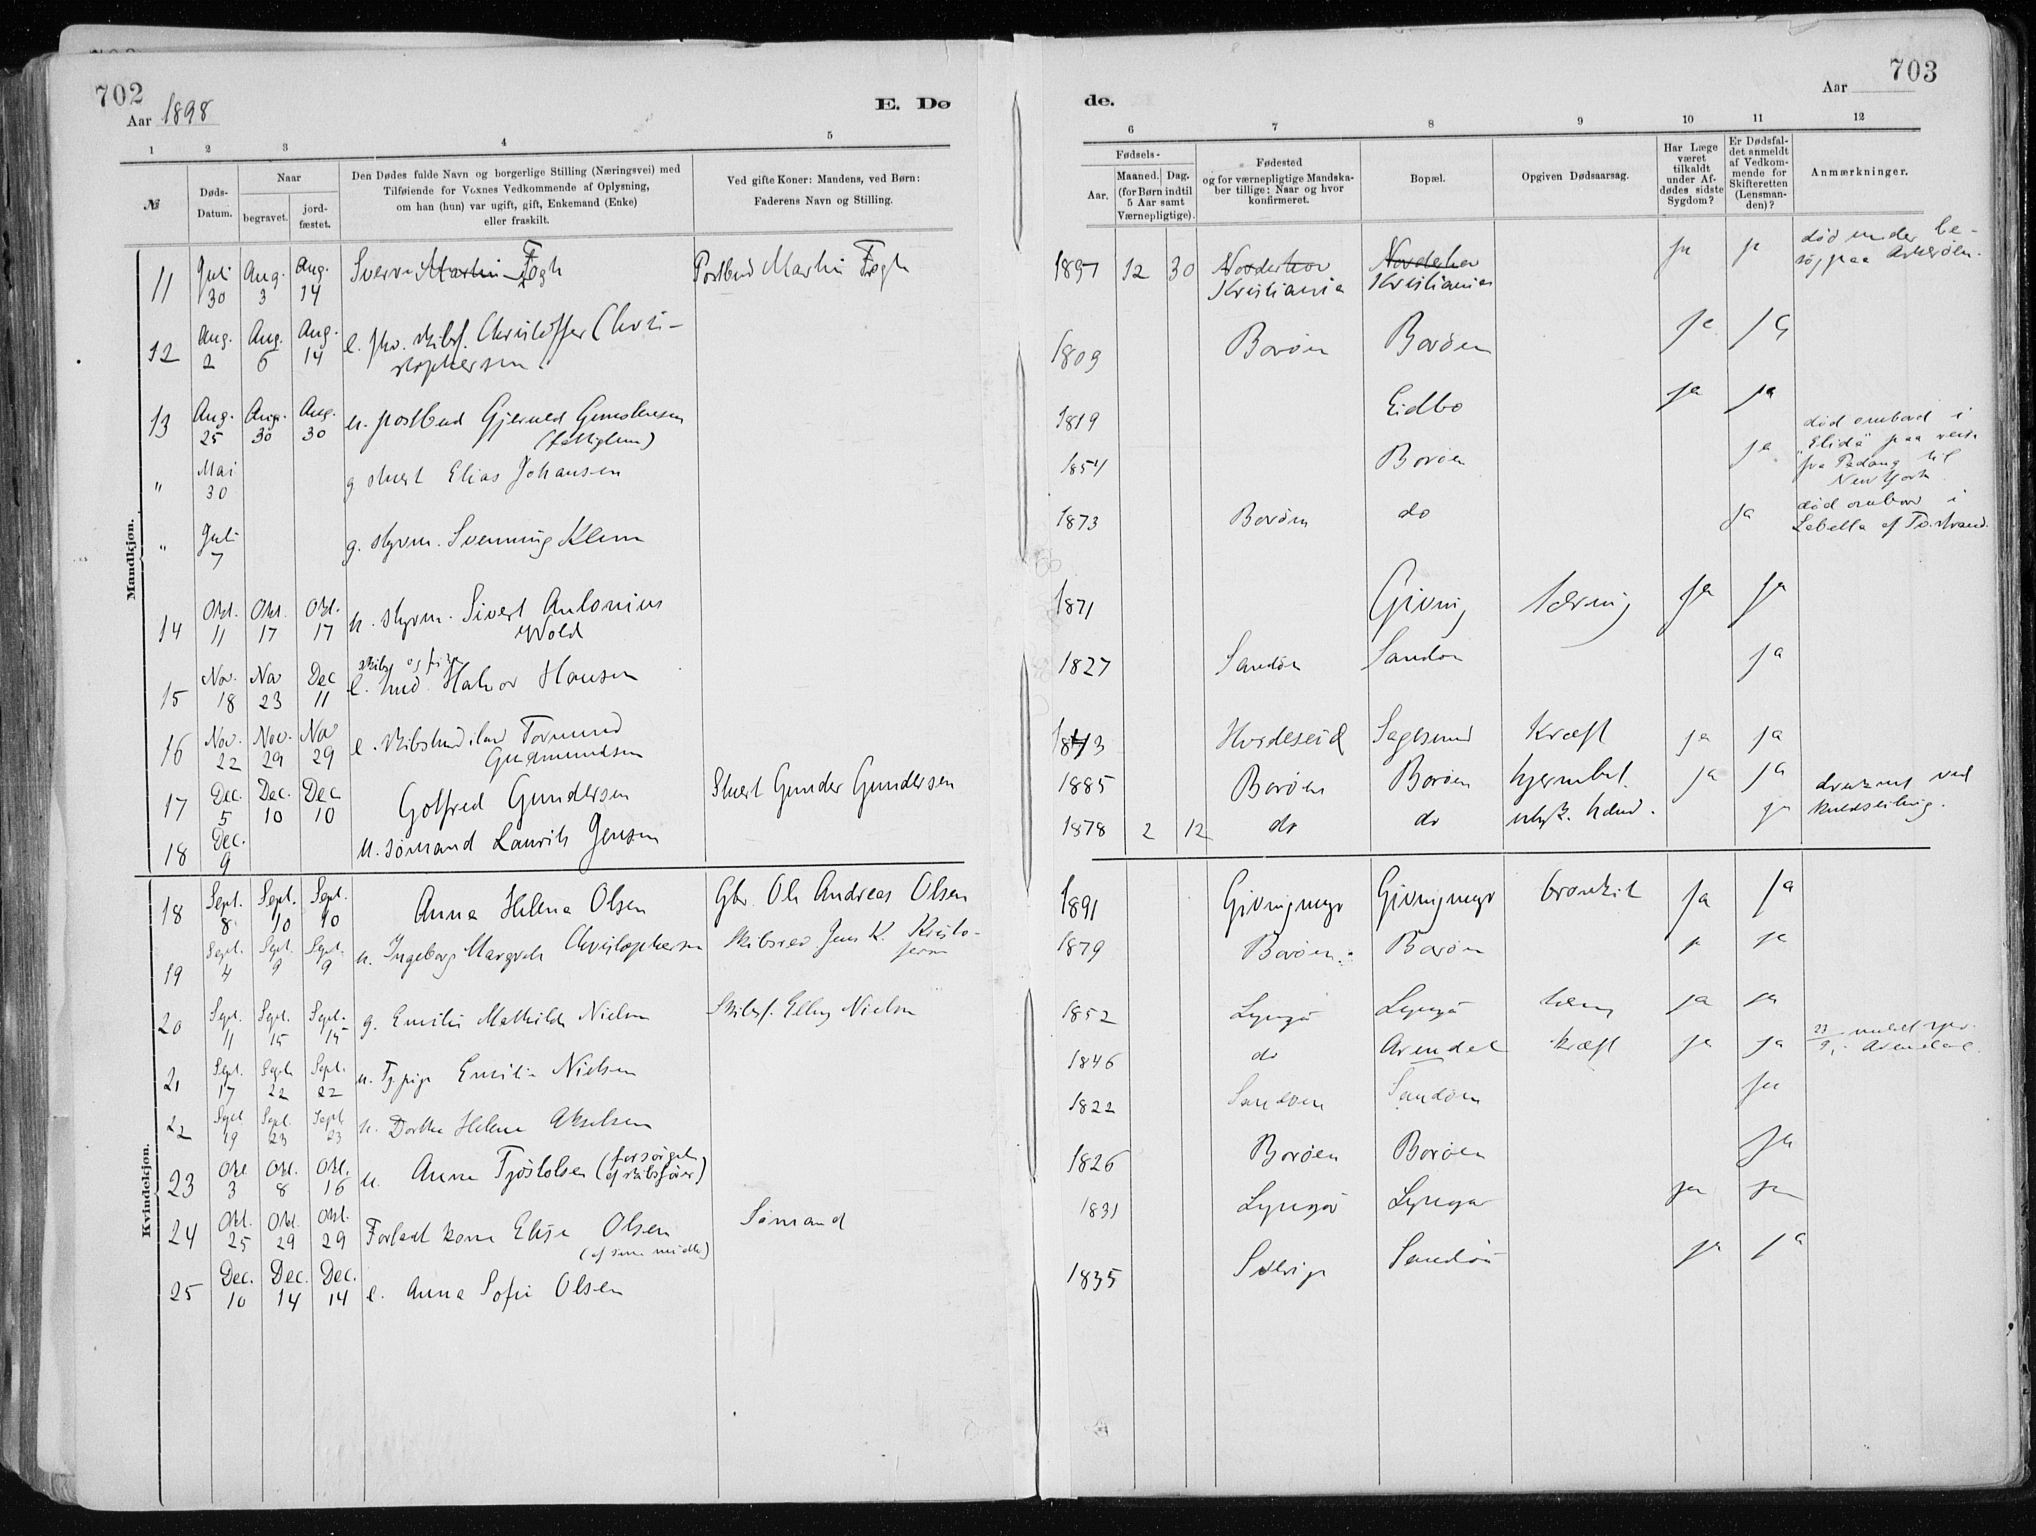 702
Aar 1898
E. Dø
1 2 3 4 5
№
Døds-
Datum.
Naar
begravet.
jord-
fæstet.
Den Dødes fulde Navn og borgerlige Stilling (Næringsvei) med
Tilføiende for Voxnes Vedkommende af Oplysning,
om han (hun) var ugift, gift, Enkemand (Enke)
eller fraskilt.
Ved gifte Koner: Mandens, ved Børn:
Faderens Navn og Stilling.
Mandkjøn.
11 Juli 30 Aug. 3 Aug. 14 Sverre Martin Fogh Postbud Martin Fogh
12 Aug. 2 Aug. 6 Aug. 14 e. fhv. skibsf. Christoffer Christophersen
13 Aug. 25 Aug. 30 Aug. 30 u. postbud Gjeruld Gunstensen
(fattiglem)
" Mai 30 g stuert Elias Johansen
" Juli 7 g. styrm. Svenning Klem
14 Okt. 11 Okt. 17 Okt. 17 u. styrm. Sivert Antonius
Wold
15 Nov. 18 Nov 23 Dec 11 e. Halvor Hansen
16 Nov. 22 Nov. 29 Nov 29 e. Tormund
Gudmundsen
17 Dec. 5 Dec. 10 Dec 10 Gotfred Gundersen Stuert Gunder Gundersen
18 Dec. 9 u. sømand Laurits Jensen
Kvindekjøn.
18 Sept. 8 Sept. 10 Sept. 10 Anna Helene Olsen Gbr. Ole Andreas Olsen
19 Sept. 4 Sept. 9 Sept. 9 u. Ingeborg Margrete Christophersen Skibsred Jens K. Kristo-
20 Sept. 11 Sept. 15 Sept. 15 g. Emilie Mathilde Nielsen Skibsf. Elling Nielsen
21 Sept. 17 Sept 22 Sept. 22 u. Tj.pige Emilie Nielsen
22 Sept 19 Sept. 23 Sept 23 u. Dorthe Helene Akselsen
23 Okt 3 Okt. 8 Okt. 16 u. Anne Tjøstolsen (forsørget
af skibsfører)
24 Okt. 25 Okt. 29 Okt. 29 Forladt kone Elise Olsen Sømand
(af sine midler)
25 Dec. 10 Dec. 14 Dec. 14 e. Anna Sofie Olsen
703
Aar
de.
6 7 8 9 10 11 12
Fødsels-
Aar.
Maaned. Dag.
(for Børn indtil
5 Aar samt
Værnepligtige).
Fødested
og for værnepligtige Mandska-
ber tillige: Naar og hvor
konfirmeret.
Bopæl.
Opgiven Dødsaarsag.
Har Læge
været
tilkaldt
under Af-
dødes sidste
Sygdom?
Er Dødsfal-
det anmeldt
af Vedkom-
mende for
Skifteretten
(Lensman-
den)?
Anmærkninger.
1897 12 30 Norderhov Norderhov ja ja død under be-
Kristiania Kristiania søg paa Askerøen.
1809 Borøen Borøen ja ja
1819 Eidbo ja ja
1854 Borøen ja død ombord i
"Elida" paa reise
fra Padang til
New York
1873 Borøen do ja død ombord i
Labella af Tvedestrand.
1871 Giving tæring ja ja
1827 Sandøen Sandøen ja
1843 Hvideseid Sagesund Kræft ja ja
1885 Borøen Borøen hjernebet. ja ja
1878 2 12 do do ulyk. hænd. ja druknet ved
kuldseiling.
1891 Givingmyr Givingmyr bronkit ja ja
1879 Borøen Borøen ja ja
1852 Lyngør Lyngør tæring ja ja
1846 do Arendal kræft ja ja 23/9 Arendal.
1822 Sandøen Sandøen ja
1826 Borøen Borøen ja
1831 Lyngør Lyngør ja ja
1835 Sandøen ja ja